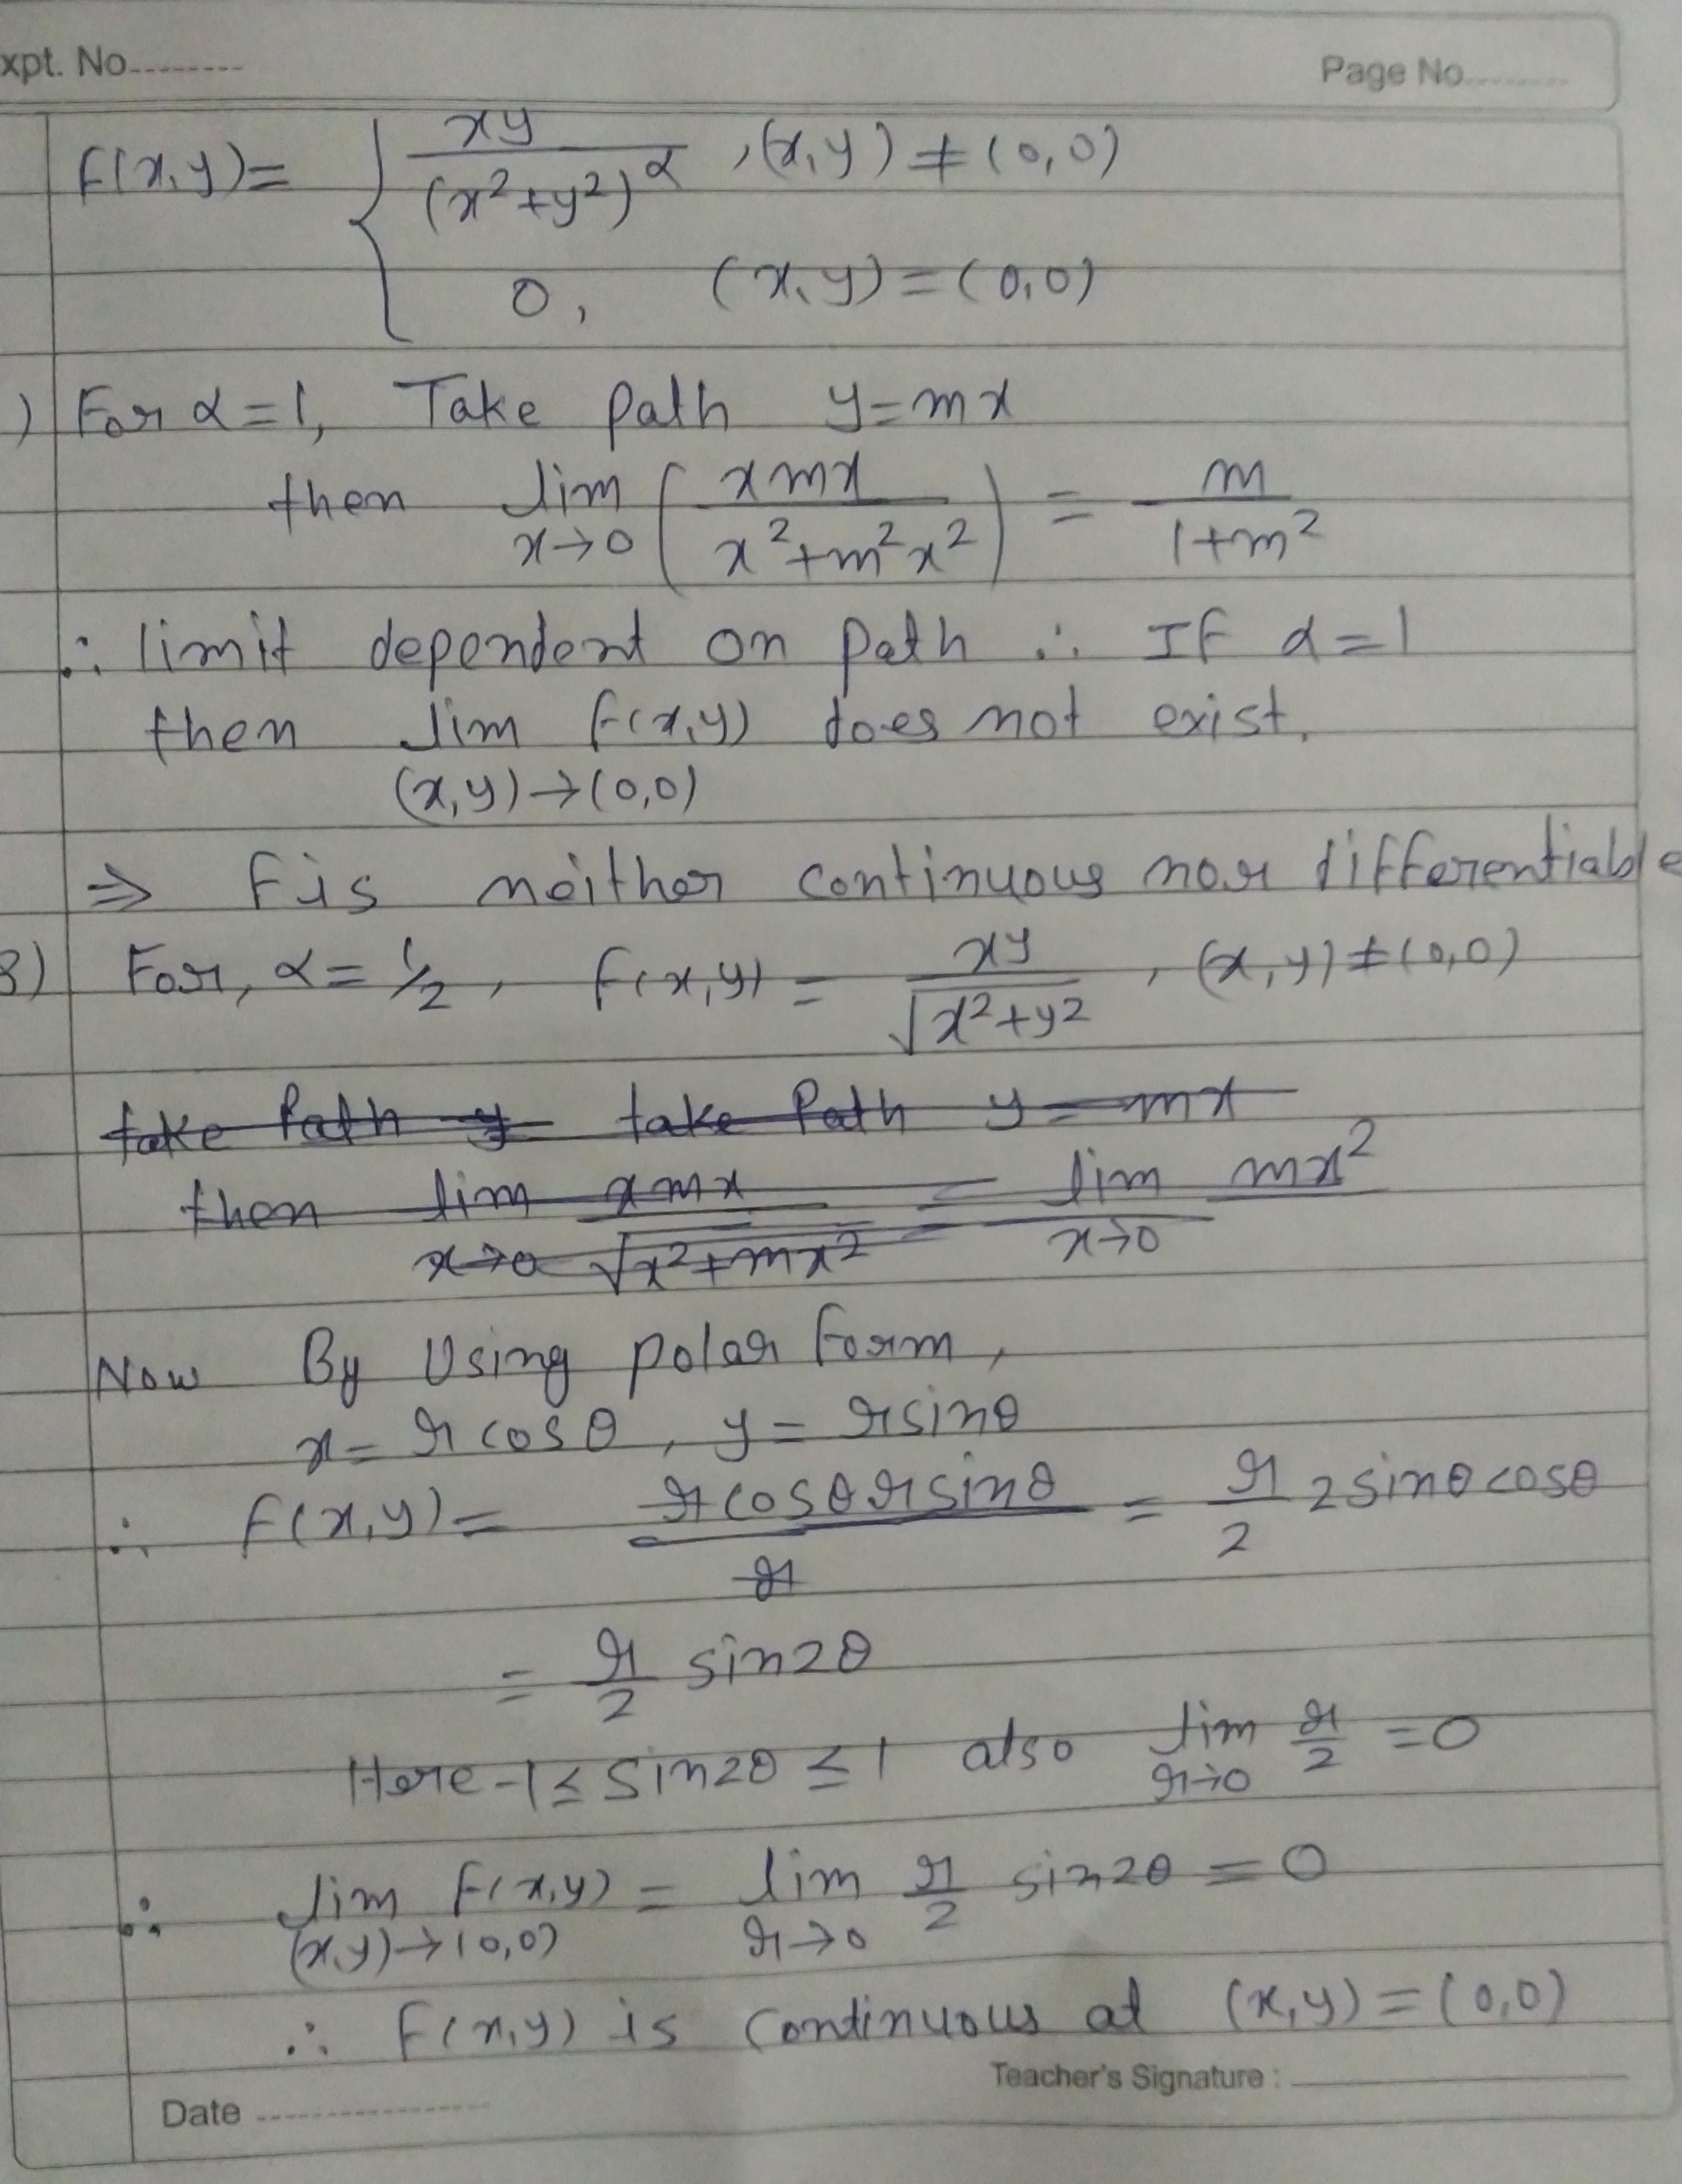 xpt. No.........
Page No.........
f(x,y) = { xy / (x²+y²)^α , (x,y) ≠ (0,0)
0, (x,y) = (0,0)
) For α=1, Take path y=mx
then lim x→0 ( xmx / x²+m²x² ) = m / 1+m²
∴ limit dependent on path ∴ If α=1
then lim f(x,y) does not exist.
(x,y)→(0,0)
⇒ F is neither continuous nor differentiable
3) For, α = 1/2, f(x,y) = xy / √x²+y² , (x,y) ≠ (0,0)
take path y take path y = mx
then lim x→0 xmx / √x²+mx² = lim x→0 mx²
Now By Using polar form,
x = r cosθ, y = r sinθ
∴ f(x,y) = r cosθ r sinθ / r = r/2 2 sinθ cosθ
= r/2 sin2θ
Here -1 ≤ sin2θ ≤ 1 also lim r→0 r/2 = 0
∴ lim (x,y)→(0,0) f(x,y) = lim r→0 r/2 sin2θ = 0
∴ f(x,y) is continuous at (x,y) = (0,0)
Teacher's Signature :
Date